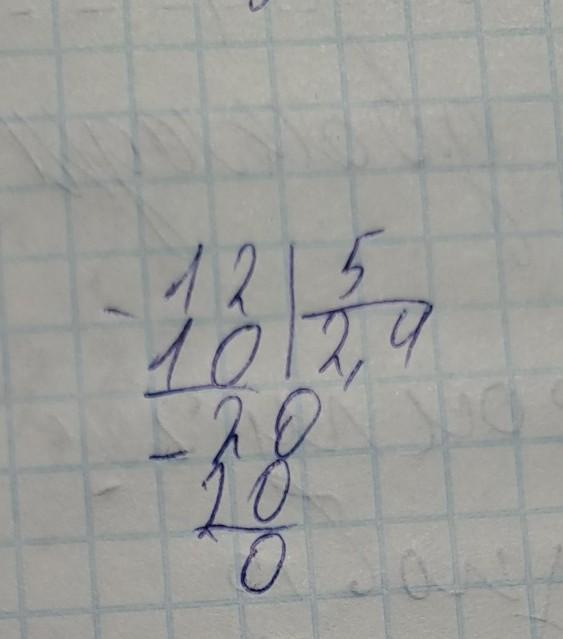 - 12 | 5
10 | 2,4
- 20
20
0